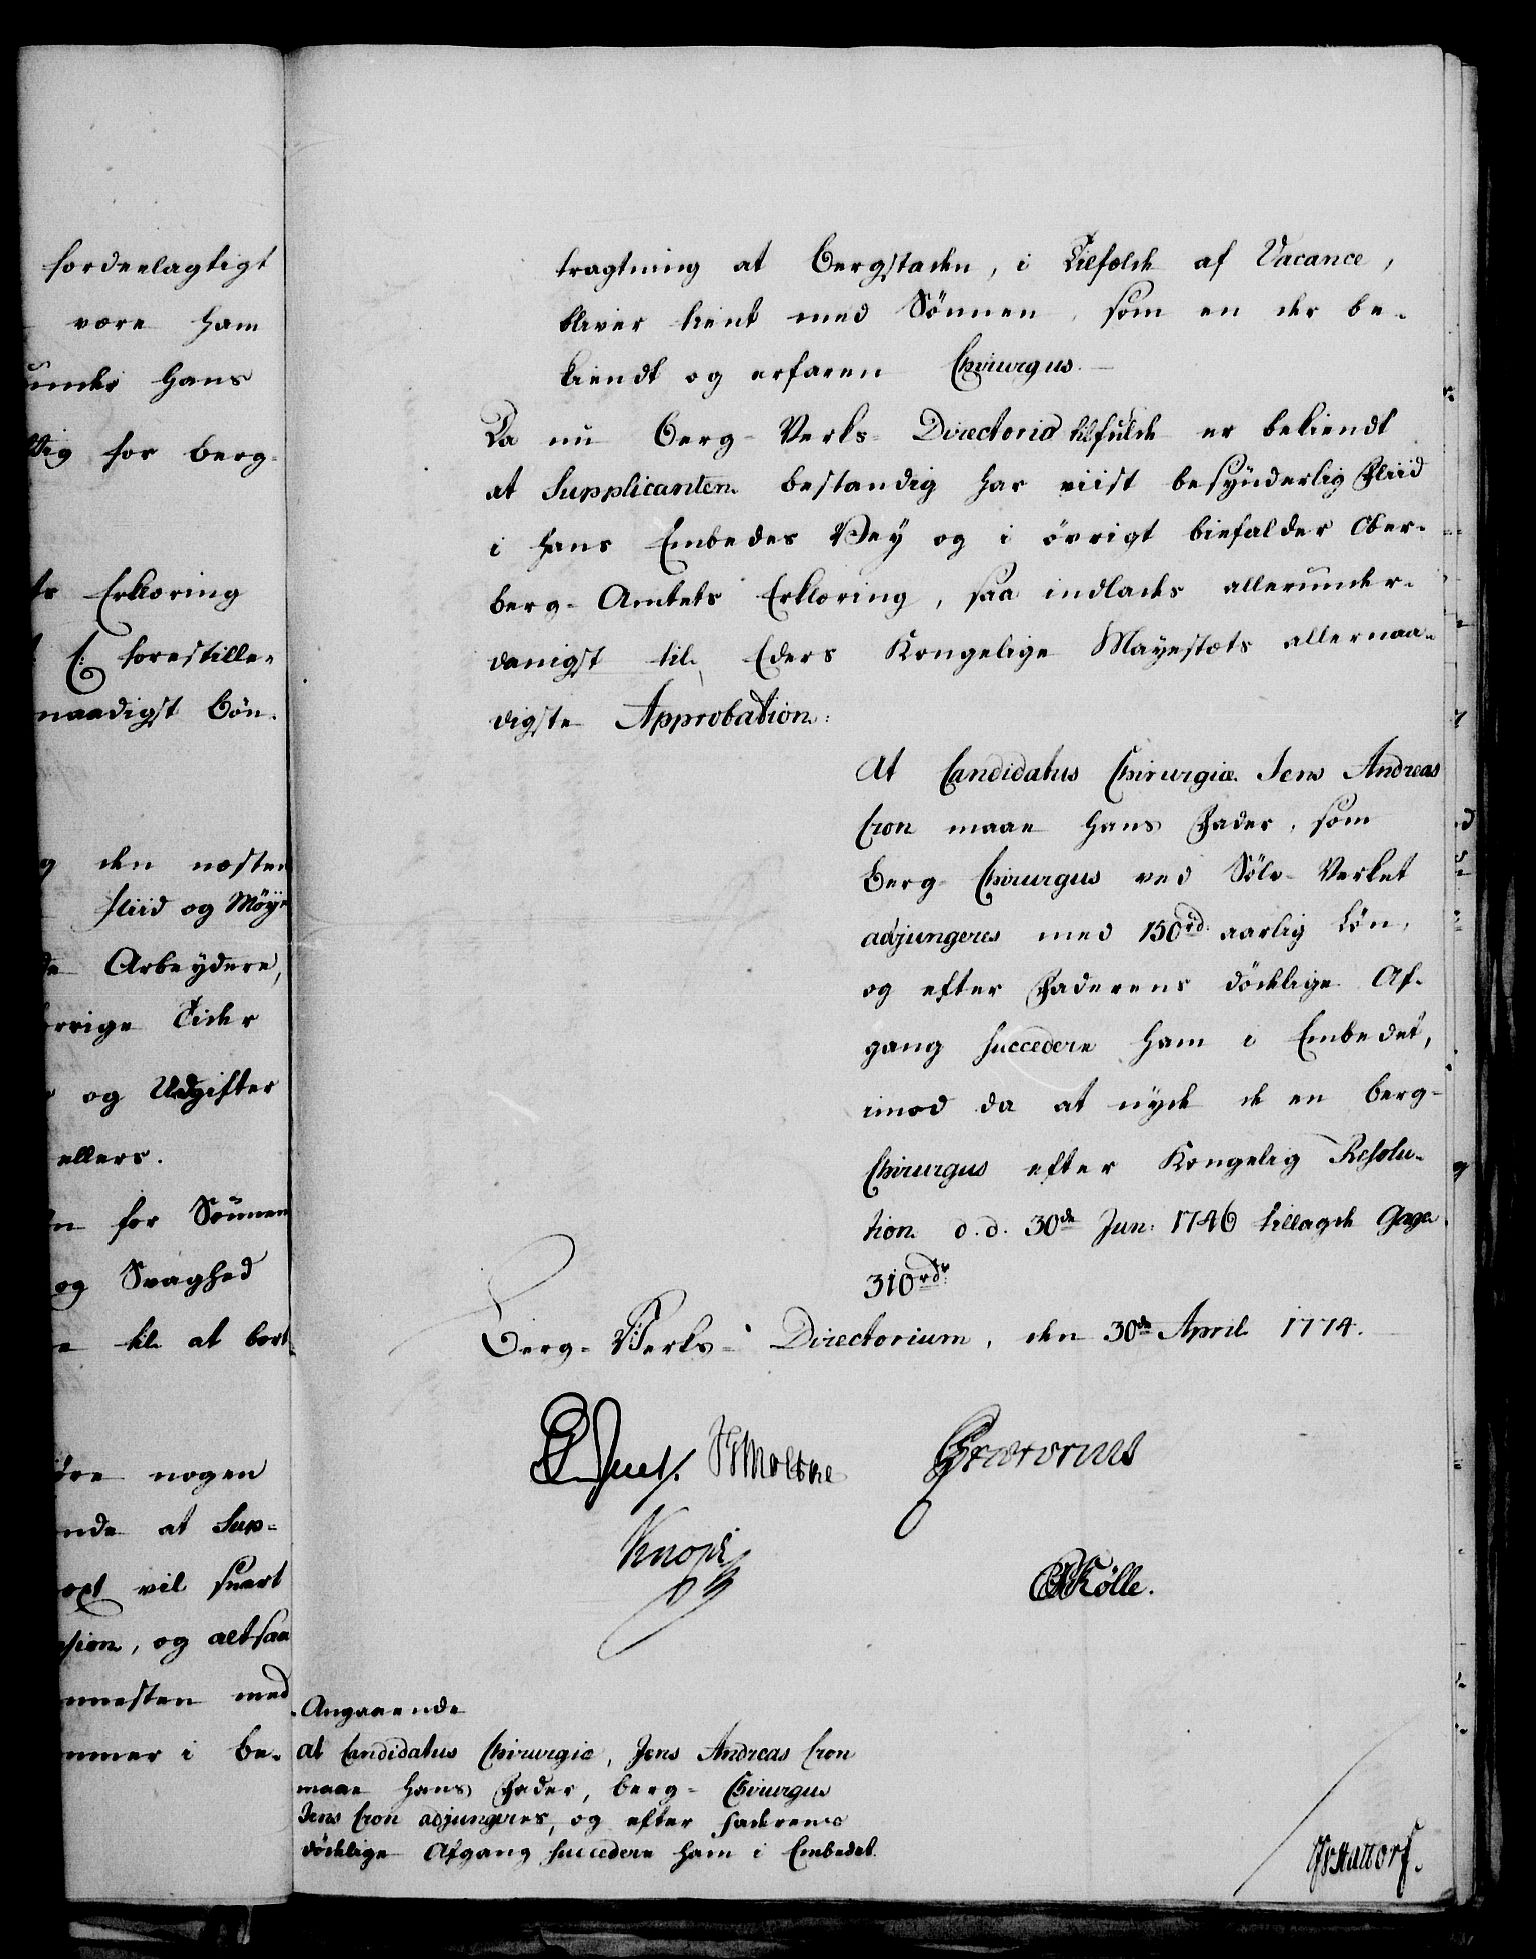 fordeelagtigt
være ham
under hans
for Berg-
Erklæring
forestille-
naadigst Bøn.
den næsten
fliid og Møye
Arbeydere,
Tider
og Udgifter
ellers.
for Sönnen
og Svaghed
til at bort
nogen
at Sup-
vil snart
og altsaa
med
i be-
tragtning at Bergstaden, i Tilfælde af Vacance,
bliver tient med Sönnen, som en der be-
kiendt og erfaren Chirurgus.
Da nu Berg-Verks-Directorio tilfulde er bekiendt
at Supplicanten bestandig har viist besÿnderlig Fliid
i hans Embedes Vey og i övrigt biefalder Ober-
berg-Amtets Erklæring, saa indlades allerunder-
danigst til Eders Kongelige Mayestæts allernaa-
digste Approbation:
At Candidatus Chirurgiæ Jens Andreas
Cron maae hans Fader, som
Berg-Chirurgus ved Sölv-Verket
adjungeres med 150 rd. aarlig Lön,
og efter Faderens dödelige Af-
gang succedere ham i Embedet,
imod da at nyde de en Berg-
Chirurgus efter Kongelig Resolu-
tion d.d. 30de Jun: 1746 tillagde Gage
310 rdr.
Berg-Verks-Directorium, den 30de April 1774.
Juel. Moltke
Knoph
Kölle.
Angaaende
at Candidatus Chirurgiæ, Jens Andreas Cron
maae hans Fader, Berg-Chirurgus
Jens Cron adjungeres, og efter Faderens
dödelige Afgang succedere ham i Embedet.